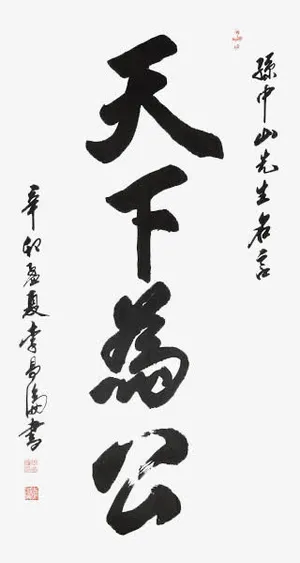 孫中山先生名言
天下為公
辛卯夏李昌書